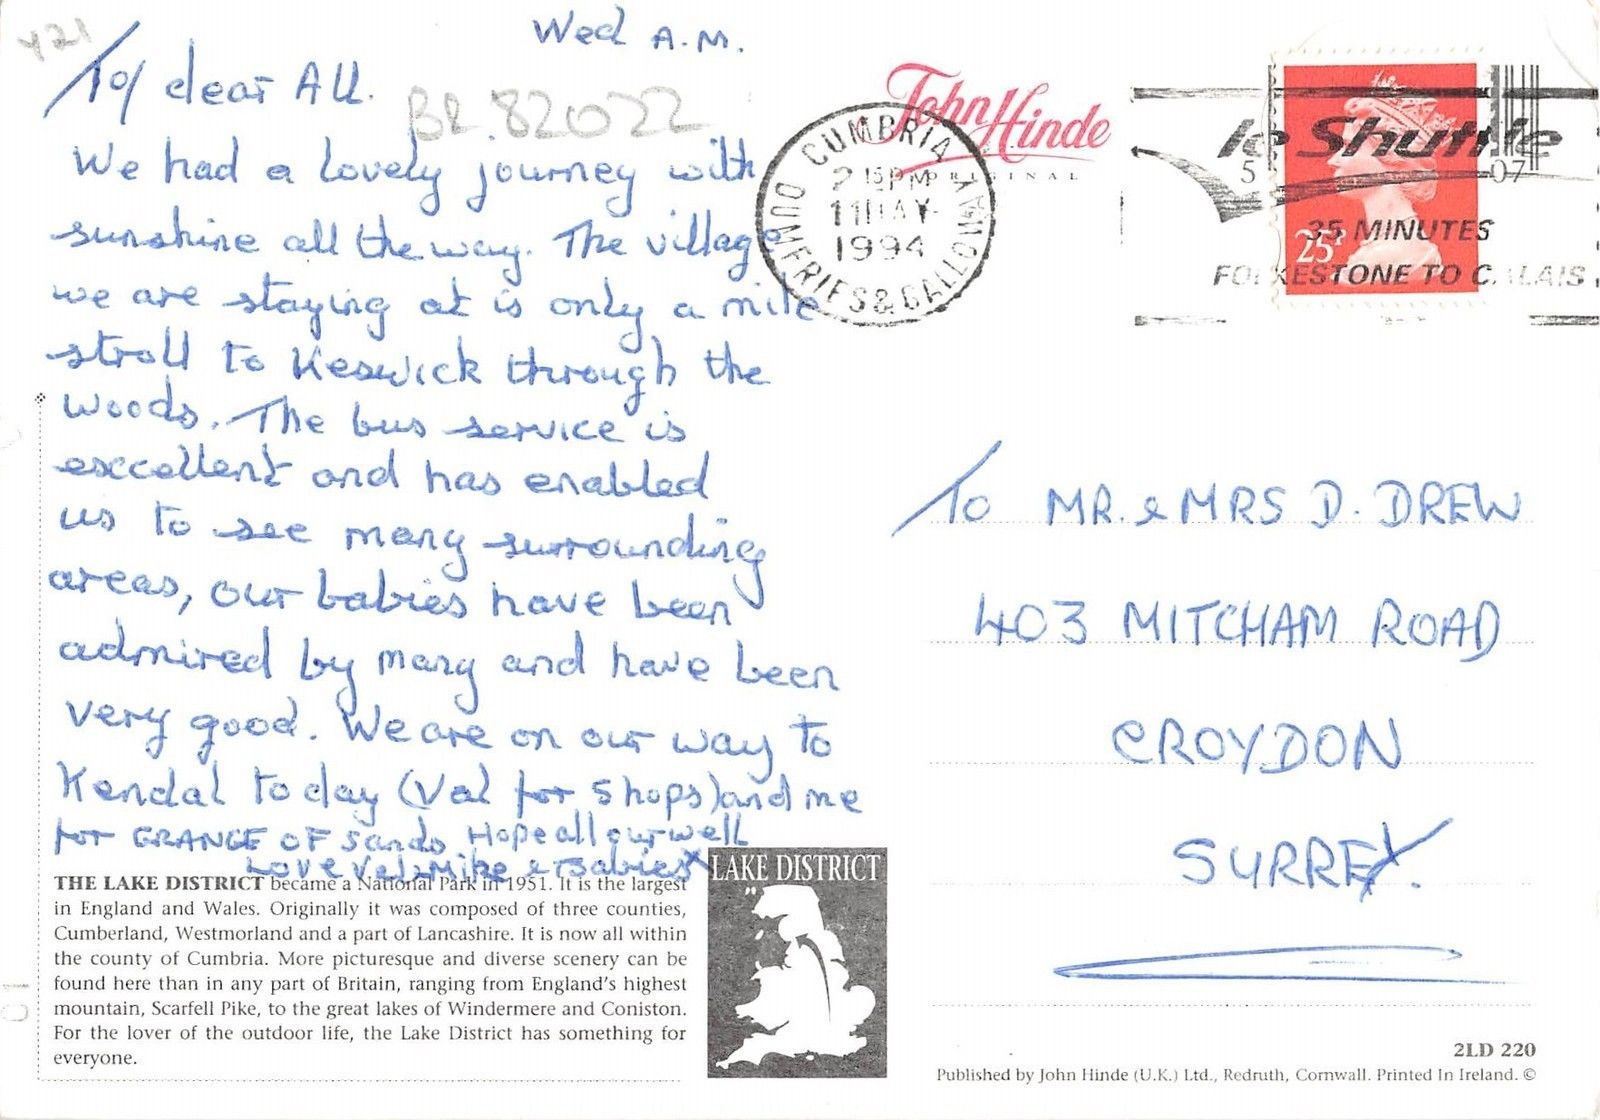 Y21
Wed A.M.
To/ dear All.
BR 82022
We had a lovely journey with
sunshine all the way. The village
we are staying at is only a mile
stroll to Keswick through the
woods. The bus service is
exccellent and has enabled
us to see many surrounding
areas, our babies have been
admired by many and have been
very good. We are on our way to
Kendal today (Val for shops) and me
for GRANGE OF Sands Hope all our well
Love Val & Mike & Babies X
John Hinde
ORIGINAL
CUMBRIA
2 15 PM
11 MAY
1994
DUMFRIES & GALLOWAY
le Shuttle
5 07
35 MINUTES
FOLKESTONE TO CALAIS
25P
To MR. & MRS D. DREW
403 MITCHAM ROAD
CROYDON
SURREY.
THE LAKE DISTRICT became a National Park in 1951. It is the largest
in England and Wales. Originally it was composed of three counties,
Cumberland, Westmorland and a part of Lancashire. It is now all within
the county of Cumbria. More picturesque and diverse scenery can be
found here than in any part of Britain, ranging from England's highest
mountain, Scarfell Pike, to the great lakes of Windermere and Coniston.
For the lover of the outdoor life, the Lake District has something for
everyone.
LAKE DISTRICT
2LD 220
Published by John Hinde (U.K.) Ltd., Redruth, Cornwall. Printed In Ireland. ©